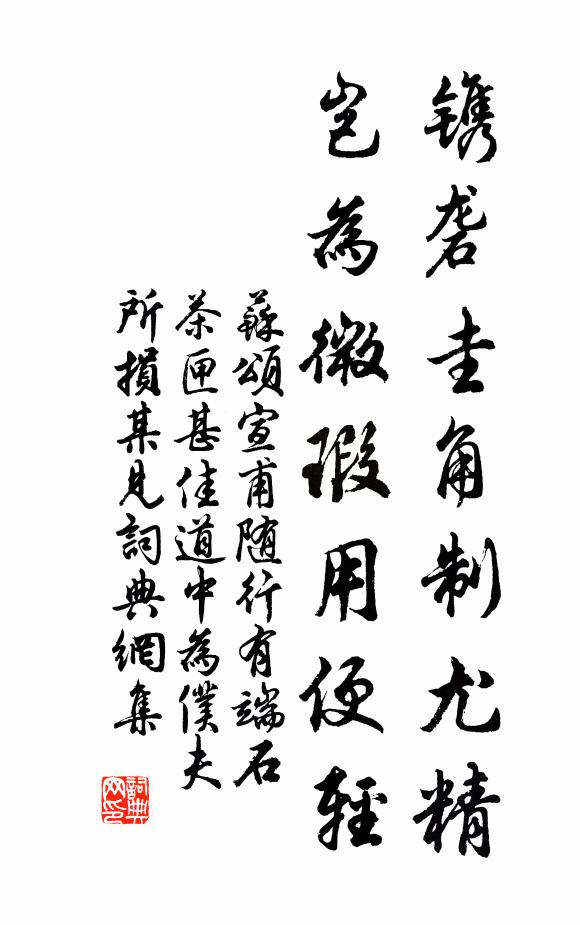 鎸砻圭角制尤精
岂為微瑕用便輕
蘇頌宣甫随行有端石
茶匣甚佳道中為僕夫
所損某見詞典網集
詞典
网印